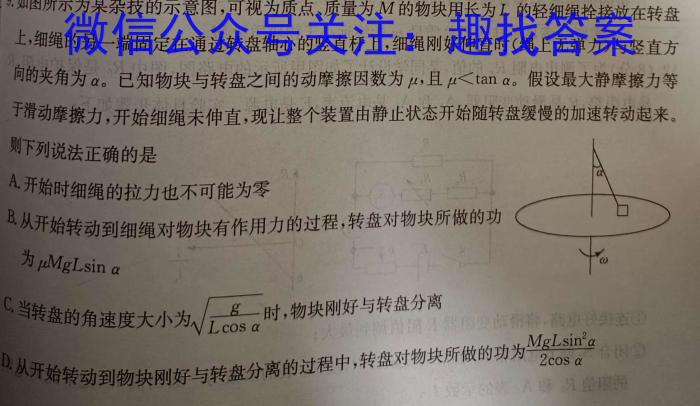 9.如图所示为某杂技的示意图,可视为质点、质量为M的物块用长为L的轻细绳拴接放在转盘
微信公众号关注：趣找答案
上,细绳的另一端固定在通过转盘轴心的竖直杆上,细绳刚好伸直时(绳上无弹力)与竖直方
向的夹角为α。已知物块与转盘之间的动摩擦因数为μ,且μ<tan α。假设最大静摩擦力等
于滑动摩擦力,开始细绳未伸直,现让整个装置由静止状态开始随转盘缓慢的加速转动起来。
则下列说法正确的是
A.开始时细绳的拉力也不可能为零
B.从开始转动到细绳对物块有作用力的过程,转盘对物块所做的功
为μMgLsin α
C.当转盘的角速度大小为√(g/(Lcos α))时,物块刚好与转盘分离
D.从开始转动到物块刚好与转盘分离的过程中,转盘对物块所做的功为MgLsin²α/(2cos α)
α
ω